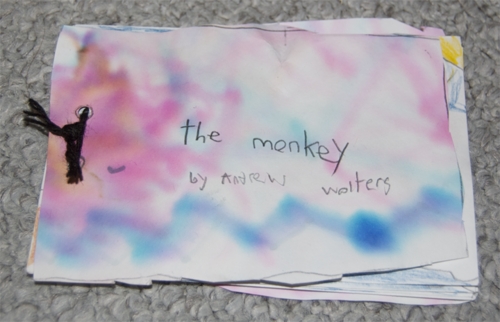 the monkey
by Andrew Walters